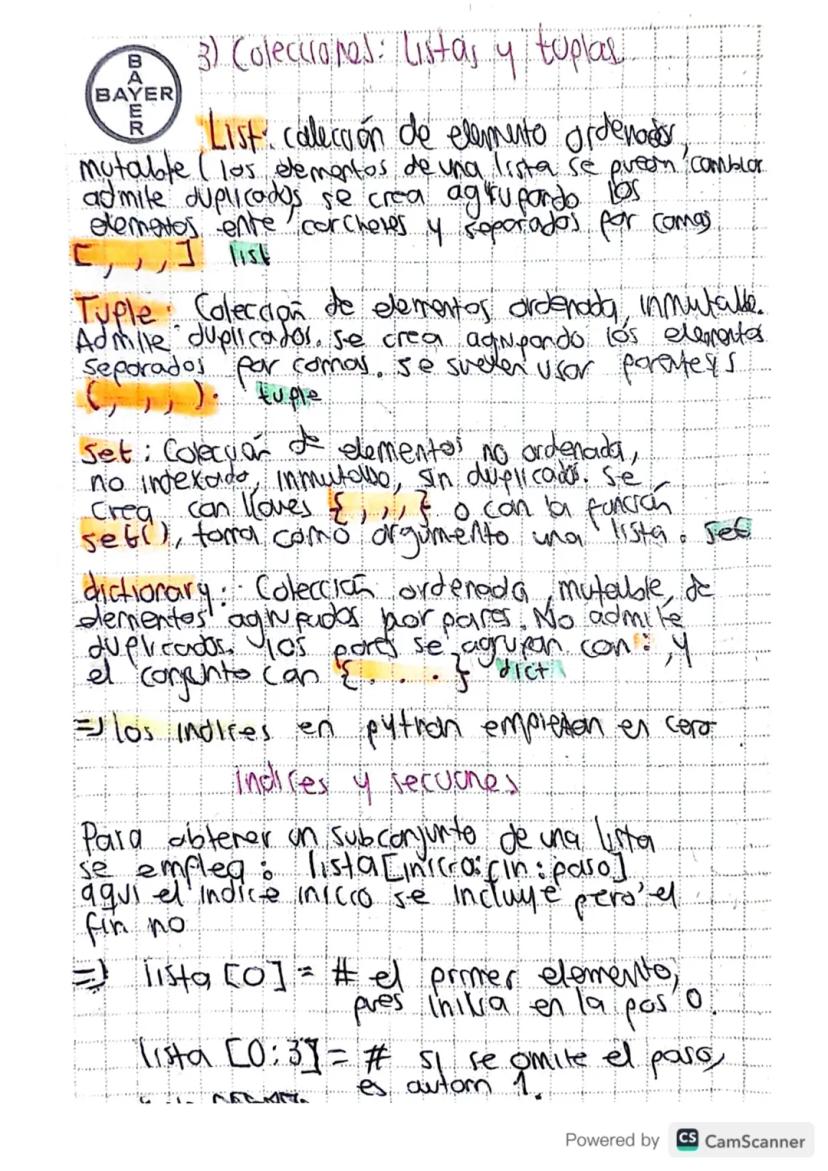 3) Colecciones: listas y tuplas
BAYER
BAYER
List: colección de elemento ordenados,
mutable (los elementos de una lista se pueden cambiar
admite duplicados, se crea agrupando los
elementos entre corchetes y separados por comas
[ , , , ] list
Tuple: Colección de elementos ordenada, inmutable.
Admite duplicados. se crea agrupando los elementos
separados por comas. se suelen usar parentesis
( , , , ). tuple
Set: Colección de elementos no ordenada,
no indexado, inmutable, sin duplicados. Se
crea con llaves { , , , } o con la función
set(), toma como argumento una lista. set
dictionary: Colección ordenada, mutable, de
elementos agrupados por pares. No admite
duplicados. los pares se agrupan con : , y
el conjunto con { . . . } dict
=> los indices en python empiezan en cero
indices y secciones
Para obtener un subconjunto de una lista
se emplea: lista[inicio:fin:paso]
aqui el indice inicio se incluye pero el
fin no
=> lista [0] = # el primer elemento,
pues inicia en la pos 0.
lista [0:3] = # si se omite el paso,
es autom 1.
Powered by CS CamScanner